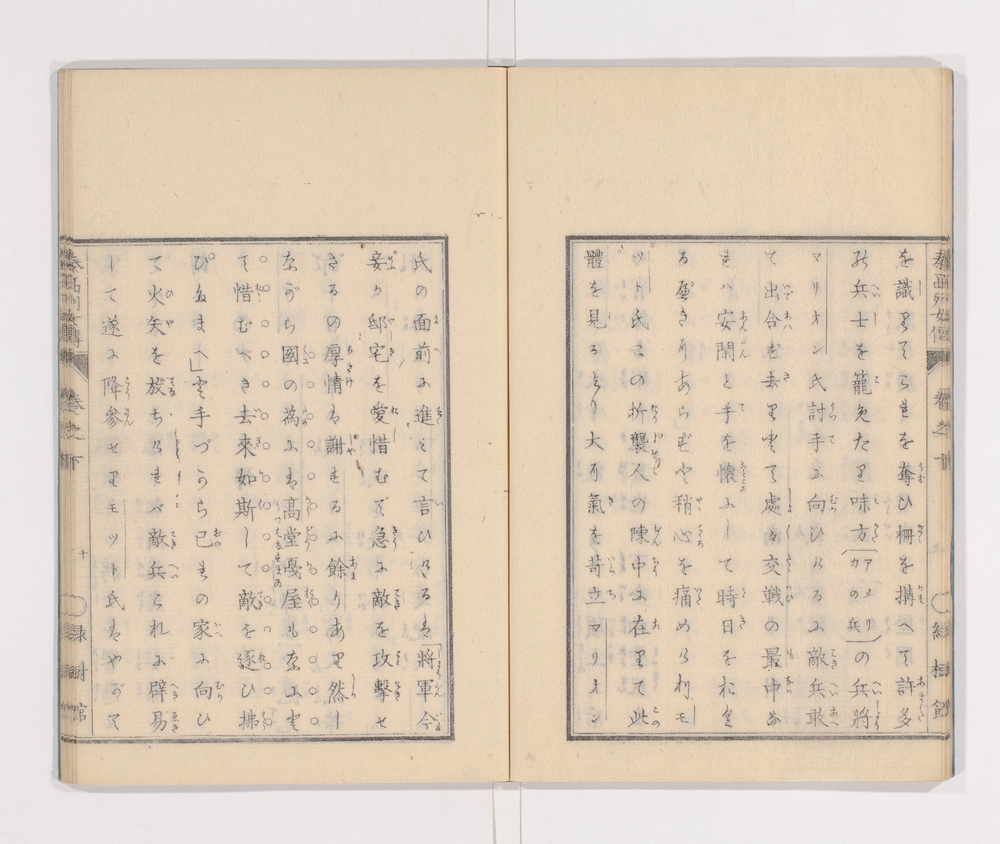 を識りてらせを奪ひ柵を搆へて許多
の兵士を籠めたり味方(カアメリの兵)の兵將
マリオン氏討手に向ひけるに敵兵敢
て出合ず去りとて處々交戰の最中な
れバ安閑と手を懷にして時日を松す
る可きにあらずと稍心を痛めけりモ
ット氏この折襲人の陳中に在りて此
體を見るより大に氣を苛立マリオン
氏の面前に進みて言ひけるは「將軍今
妾が邸宅を愛惜むで急に敵を攻擊せ
ざるの厚情は謝するに餘りあり然し
ながら國の為には髙堂戞屋も なに と
て惜むべき去來如斯して敵を逐ひ拂
ひ給へ」と手づから已れの家に向ひ
て火矢を放ちけれバ敵兵これに辟易
して遂に降參せりモット氏はやがて
泰西列女傳 卷之下 十 録樹館